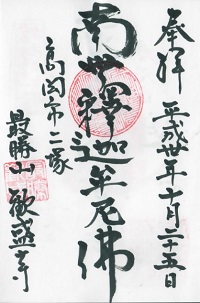 奉拝 平成廿年十月二十五日
南無釋迦牟尼佛
高岡市二塚
最勝山歓盛寺